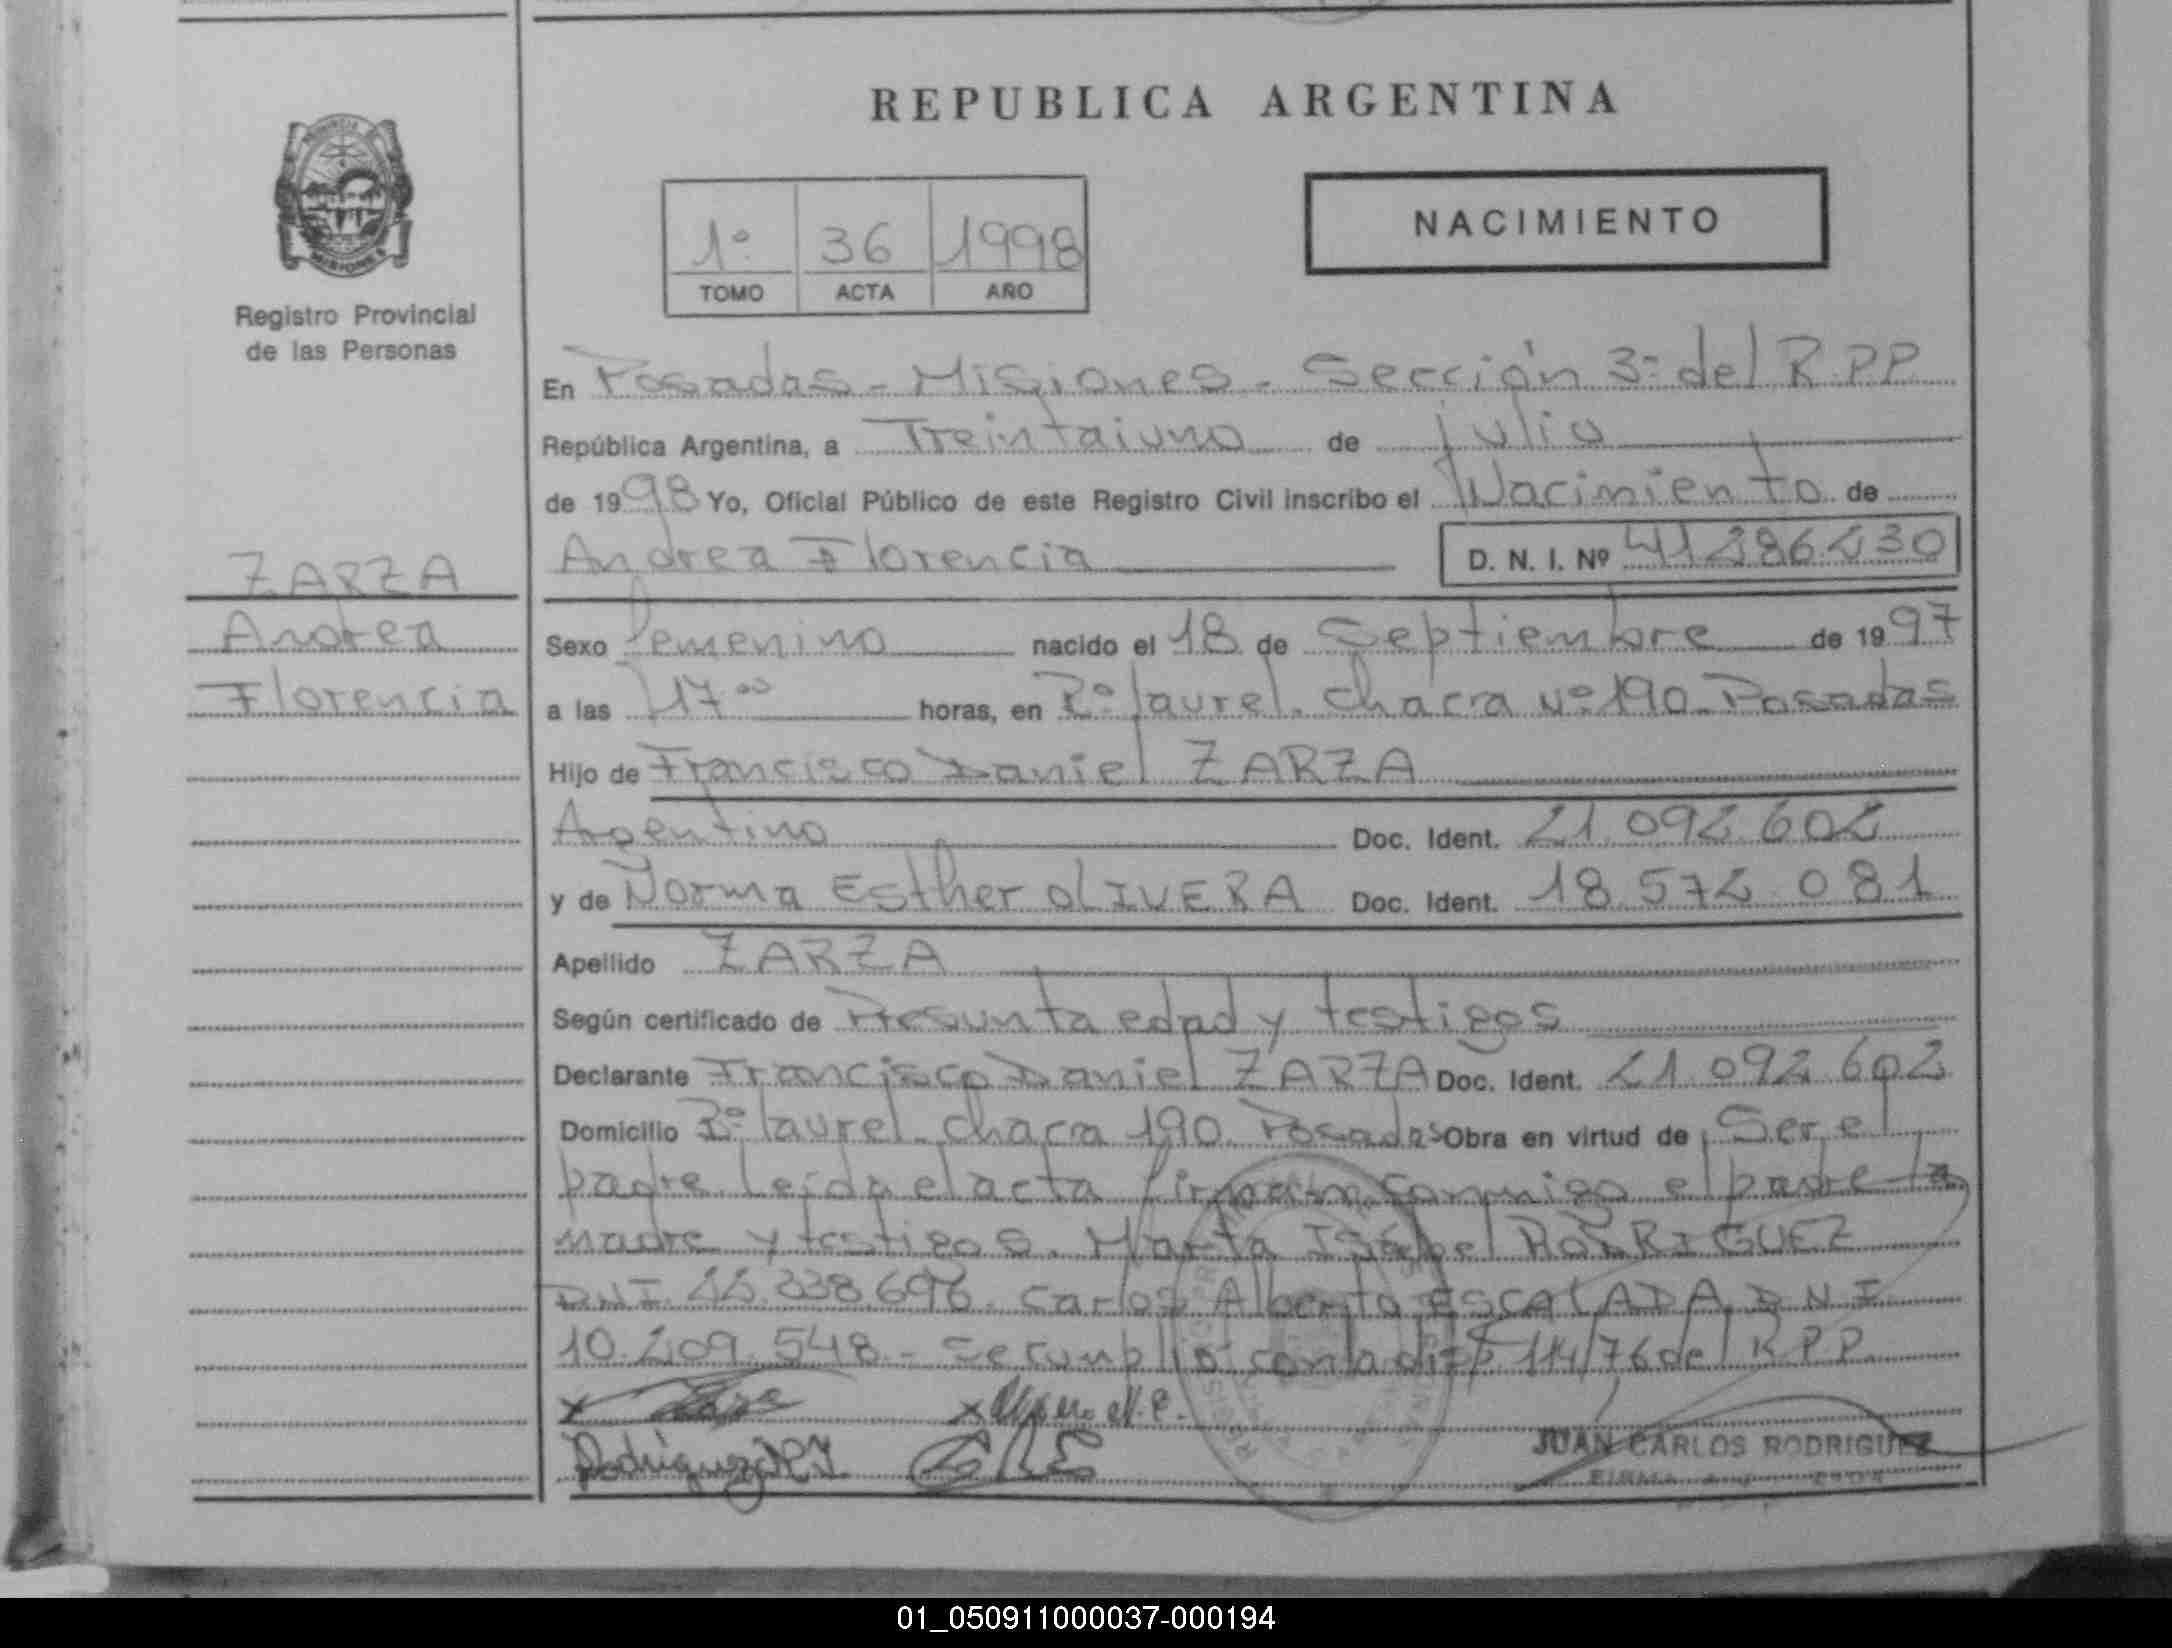 REPUBLICA ARGENTINA
PROVINCIA DE
MISIONES
Registro Provincial
de las Personas
1º 36 1998
TOMO ACTA AÑO
NACIMIENTO
En Posadas - Misiones - Sección 3º del R.P.P
República Argentina, a Treintaiuno de julio
de 1998 Yo, Oficial Público de este Registro Civil inscribo el Nacimiento de
Andrea Florencia D. N. I. Nº 41.286.230
ZARZA
Andrea
Florencia
Sexo femenino nacido el 18 de Septiembre de 1997
a las 17 ºº horas, en Bº laurel. Chacra Nº 190. Posadas
Hijo de Francisco Daniel ZARZA
Argentino Doc. Ident. 21.092.602
y de Norma Esther OLIVERA Doc. Ident. 18.572.081
Apellido ZARZA
Según certificado de Presunta edad y testigos
Declarante Francisco Daniel ZARZA Doc. Ident. 21.092.602
Domicilio Bº laurel. chacra 190. Posadas Obra en virtud de Ser el
padre. Leída el acta firman conmigo el padre la
madre y testigos. Marta Isabel RODRIGUEZ
DNI 22.338.696. Carlos Alberto ESCALADA. DNI
10.209.548 - Se cumplió con la disp 114/76 del R.P.P.
JUAN CARLOS RODRIGUEZ
01_050911000037-000194